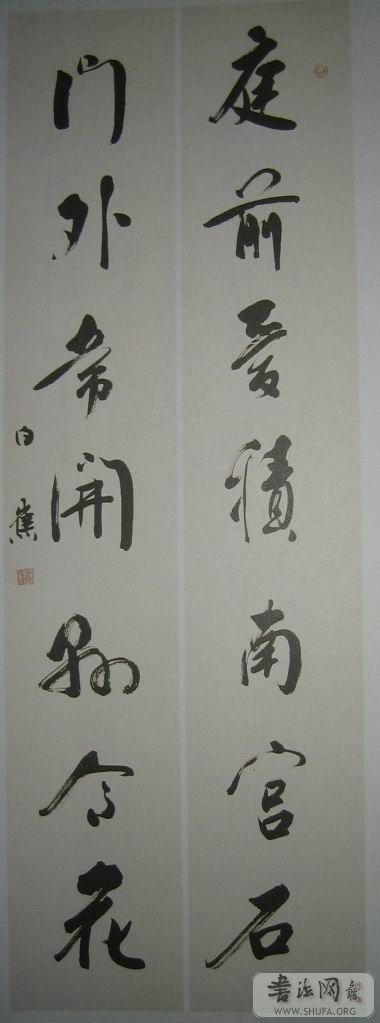 庭前積南宮石
門外常開縣令花
白蕉
書法网
WWW.SHUFA.ORG